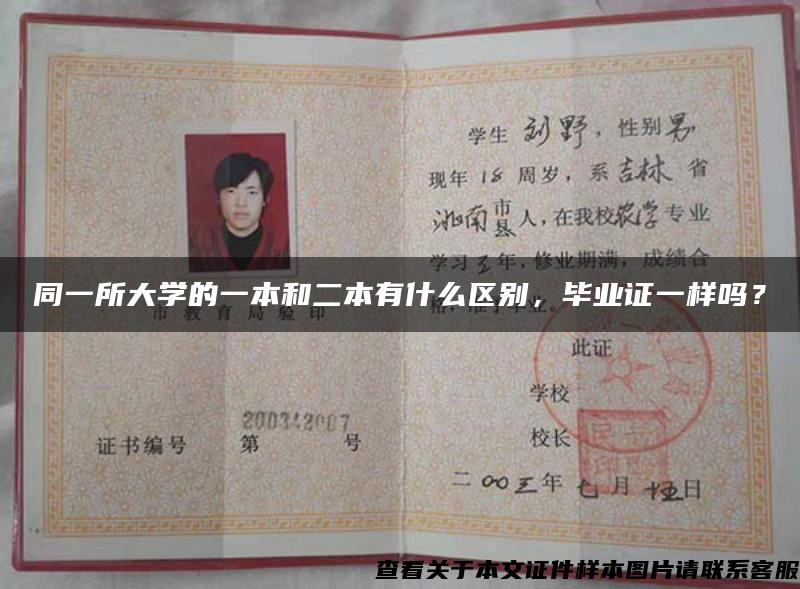 学生 刘野，性别 男
现年 18 周岁，系 吉林 省
洮南 市县 人，在我校 农学 专业
学习 三 年，修业期满，成绩合
同一所大学的一本和二本有什么区别，毕业证一样吗？
市教育局验印
格，准予毕业。
此证
学校
校长
200342007
证书编号 第 号
二00三年 七 月 十五日
查看关于本文证件样本图片请联系客服